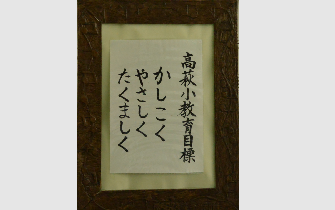 高萩小教育目標
かしこく
やさしく
たくましく